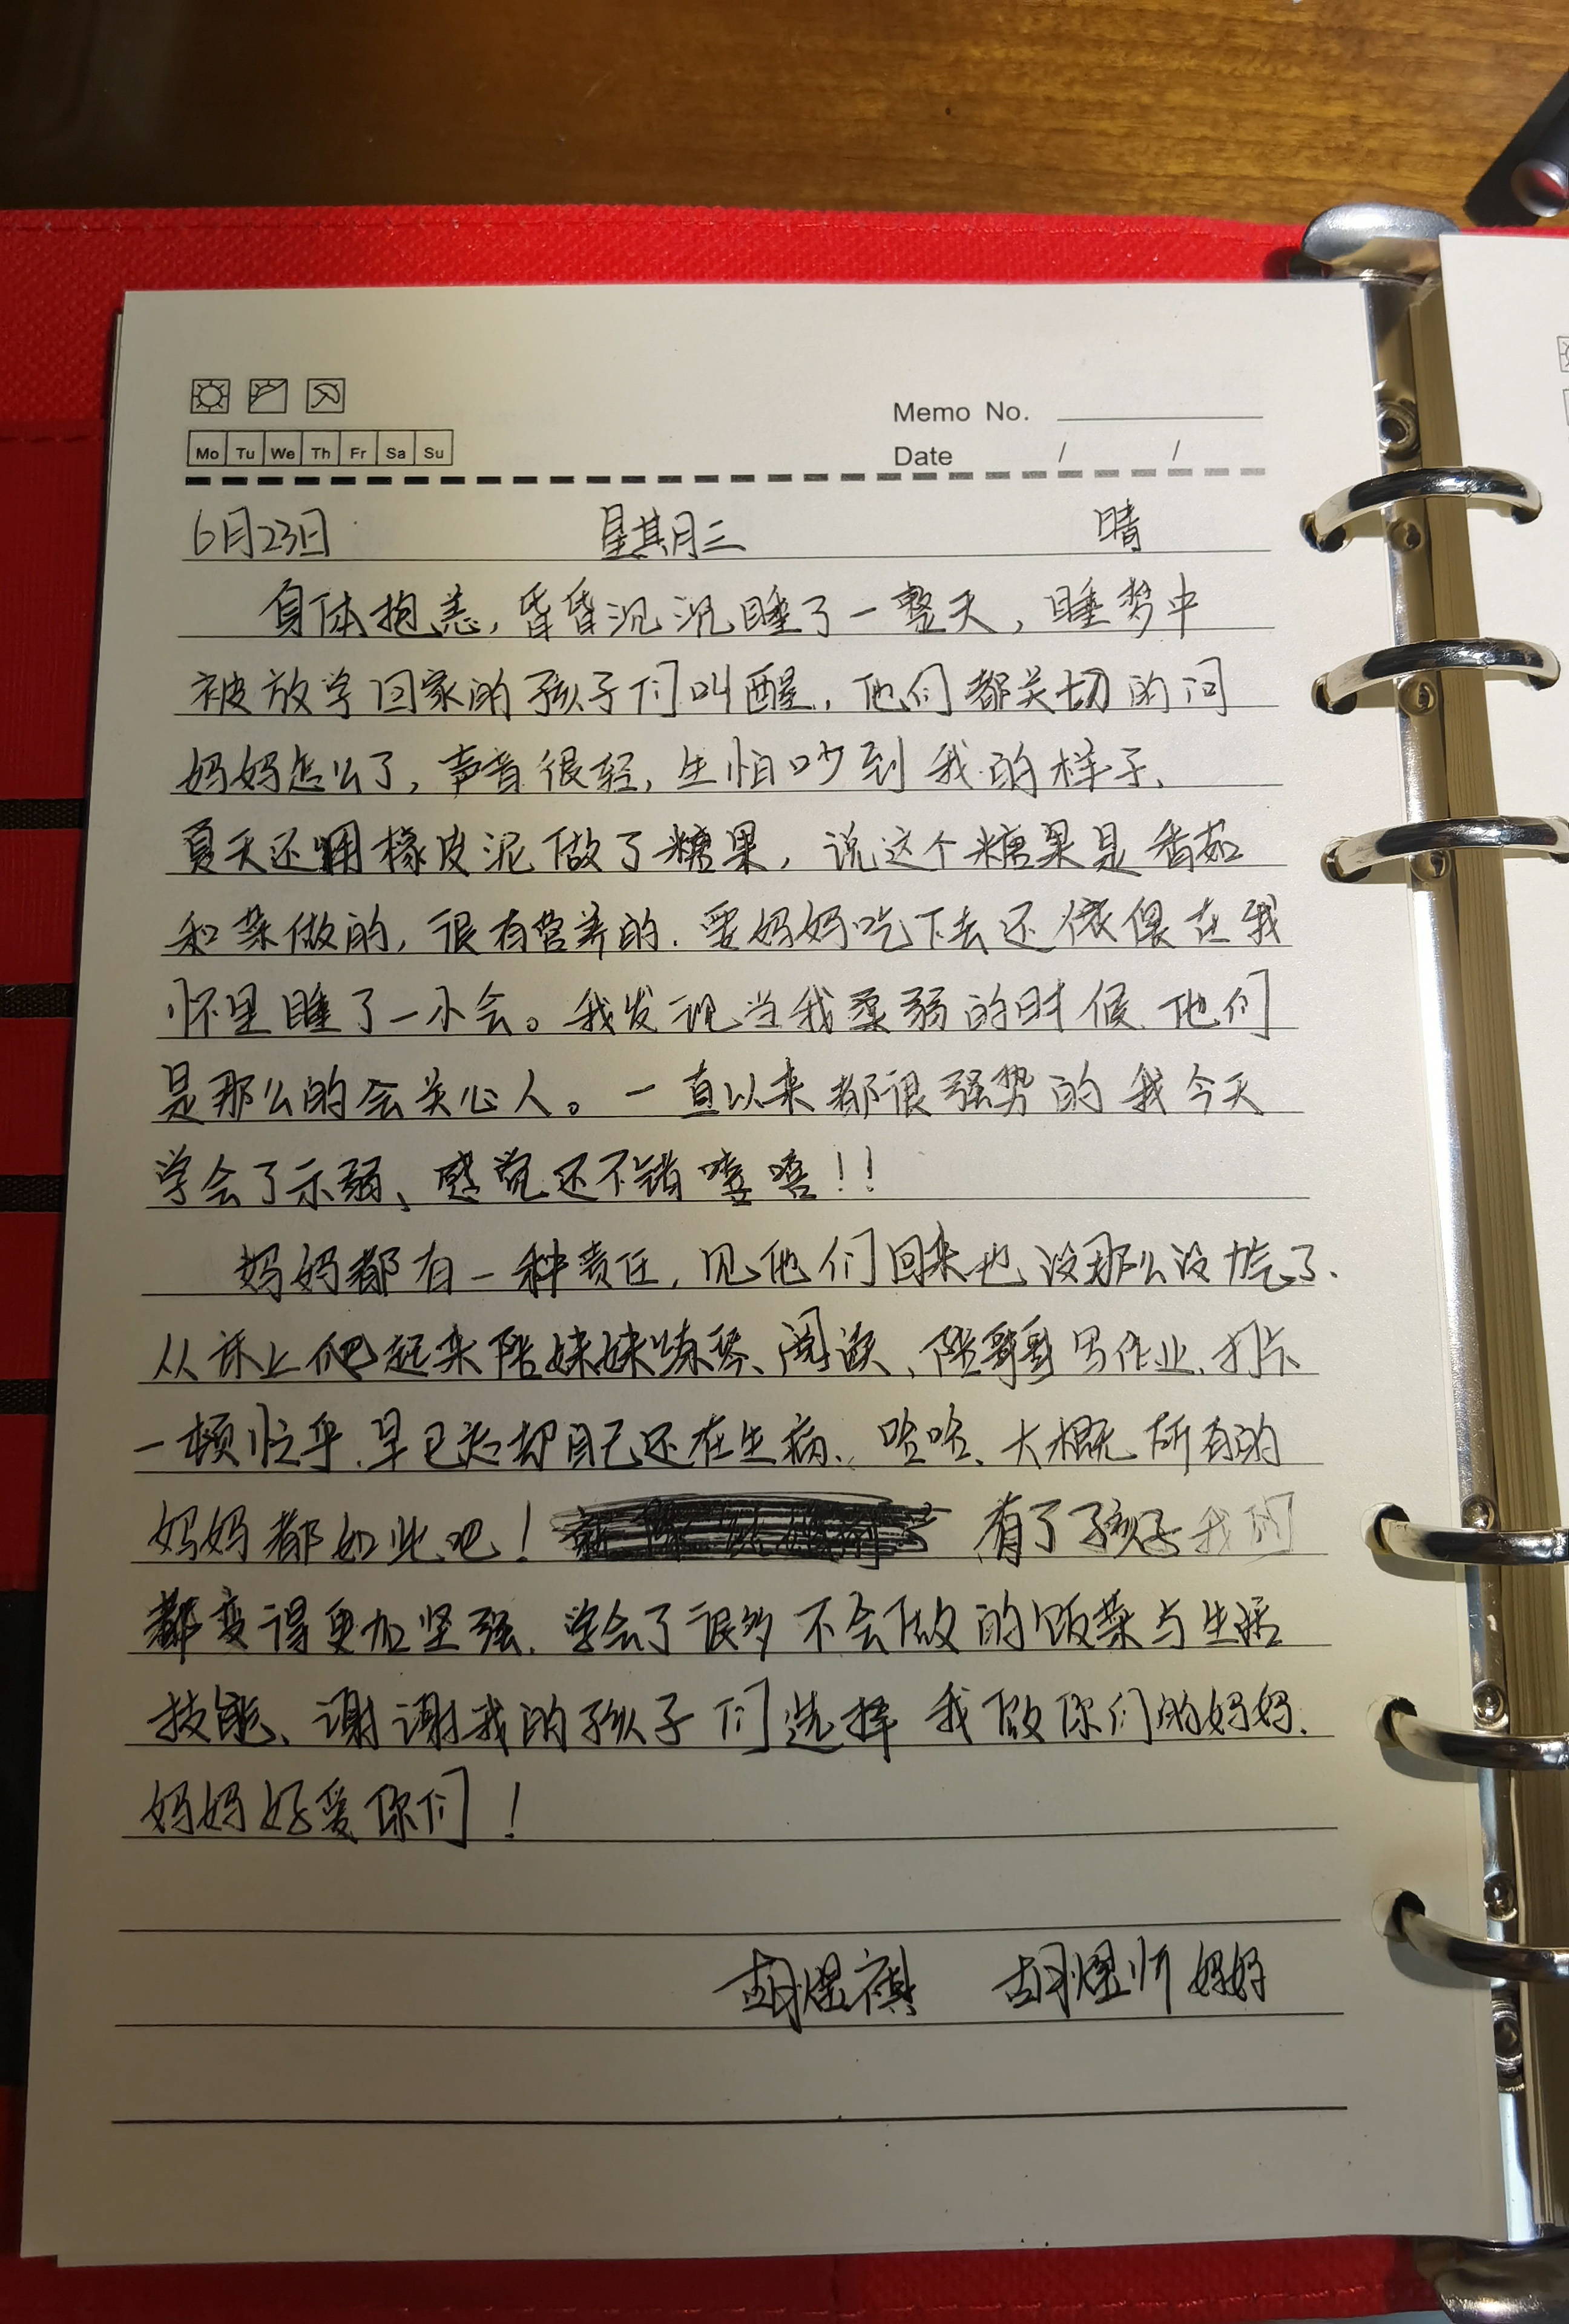 Memo No.
Mo Tu We Th Fr Sa Su
Date / /
6月23日 星期三 晴
身体抱恙，昏昏沉沉睡了一整天，睡梦中
被放学回家的孩子们叫醒，他们都关切的问
妈妈怎么了，声音很轻，生怕吵到我的样子、
夏天还用橡皮泥做了糖果，说这个糖果是番茄
和菜做的，很有营养的．要妈妈吃下去还依偎在我
怀里睡了一小会。我发现当我柔弱的时候 他们
是那么的会关心人。一直以来都很强势的我今天
学会了示弱、感觉还不错嘻嘻！！
妈妈都有一种责任，见他们回来也没那么没力气了．
从床上爬起来陪妹妹练琴、阅读、陪哥哥写作业、打卡
一顿忙乎．早已忘却自己还在生病、哈哈、大概所有的
妈妈都如此吧！ 有了孩子我们
都变得更加坚强．学会了很多不会做的饭菜与生活
技能、谢谢我的孩子们选择我做你们的妈妈．
妈妈好爱你们！
胡煜祺 胡煜师妈妈